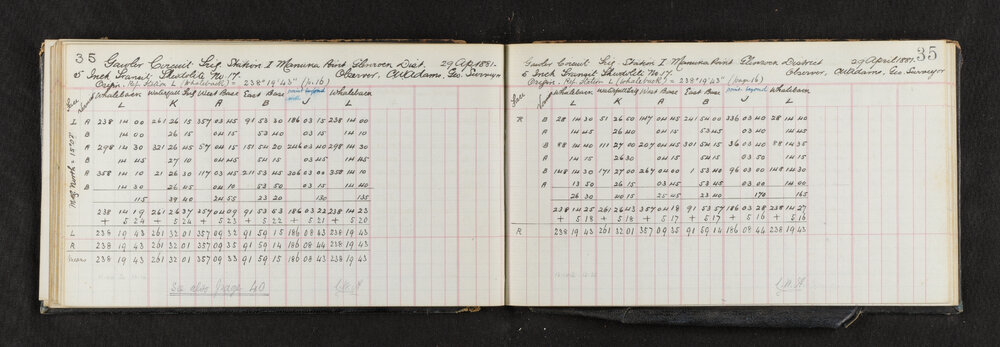 35 Gawler Circuit Trig. Station I Manuna Point Glenroen Dist. 29 Apr 1881.
5 Inch Transit Theodolite No 17. Observer, Adams, Geo. Surveyor
Orign. Ref. Station L (Whaleback) = 238° 19' 43" (p.16)
Face Vernier Whaleback Waterfall Trig West Base East Base point beyond Whaleback
L K A B J L
L A 238 14 00 261 26 15 357 03 45 91 53 30 186 03 15 238 14 00
B 14 00 26 15 04 15 53 40 03 15 14 10
A 298 14 30 321 26 45 57 04 15 151 54 20 246 03 40 298 14 30
B 14 45 27 10 04 45 54 15 03 45 14 45
A 358 14 10 21 26 30 117 03 45 211 53 45 306 03 00 358 14 10
B 14 30 26 45 04 10 53 50 03 15 14 40
115 39 40 24 55 23 20 130 135
238 14 19 261 26 37 357 04 09 91 53 53 186 03 22 238 14 23
+ 5 24 + 5 24 + 5 23 + 5 22 + 5 21 + 5 20
L 238 19 43 261 32 01 357 09 32 91 59 15 186 08 43 238 19 43
R 238 19 43 261 32 01 357 09 35 91 59 14 186 08 44 238 19 43
Means 238 19 43 261 32 01 357 09 33 91 59 15 186 08 43 238 19 43
See also page 40
Gawler Circuit Trig. Station I Manuna Point Glenroen District 29 April 1881. 35
5 Inch Transit Theodolite No 17. Observer, Adams, Geo. Surveyor
Origin. Ref. Station L (Whaleback) = 238° 19' 43" (page 16)
Face Vernier Whaleback Waterfall Trig West Base East Base point beyond Whaleback
L K A B J L
R B 28 14 30 51 26 50 147 04 45 241 54 00 336 03 40 28 14 40
A 14 45 26 40 04 15 53 45 03 40 14 45
B 88 14 40 111 27 00 207 04 45 301 54 15 36 03 40 88 14 35
A 14 15 26 30 04 15 54 15 03 50 14 15
B 148 14 30 171 27 00 267 04 00 1 53 40 96 03 00 148 14 30
A 13 50 26 15 03 45 53 45 03 00 14 00
26 30 40 15 25 45 23 40 170 165
238 14 25 261 26 43 357 04 18 91 53 57 186 03 28 238 14 27
+ 5 18 + 5 18 + 5 17 + 5 17 + 5 16 + 5 16
R 238 19 43 261 32 01 357 09 35 91 59 14 186 08 44 238 19 43